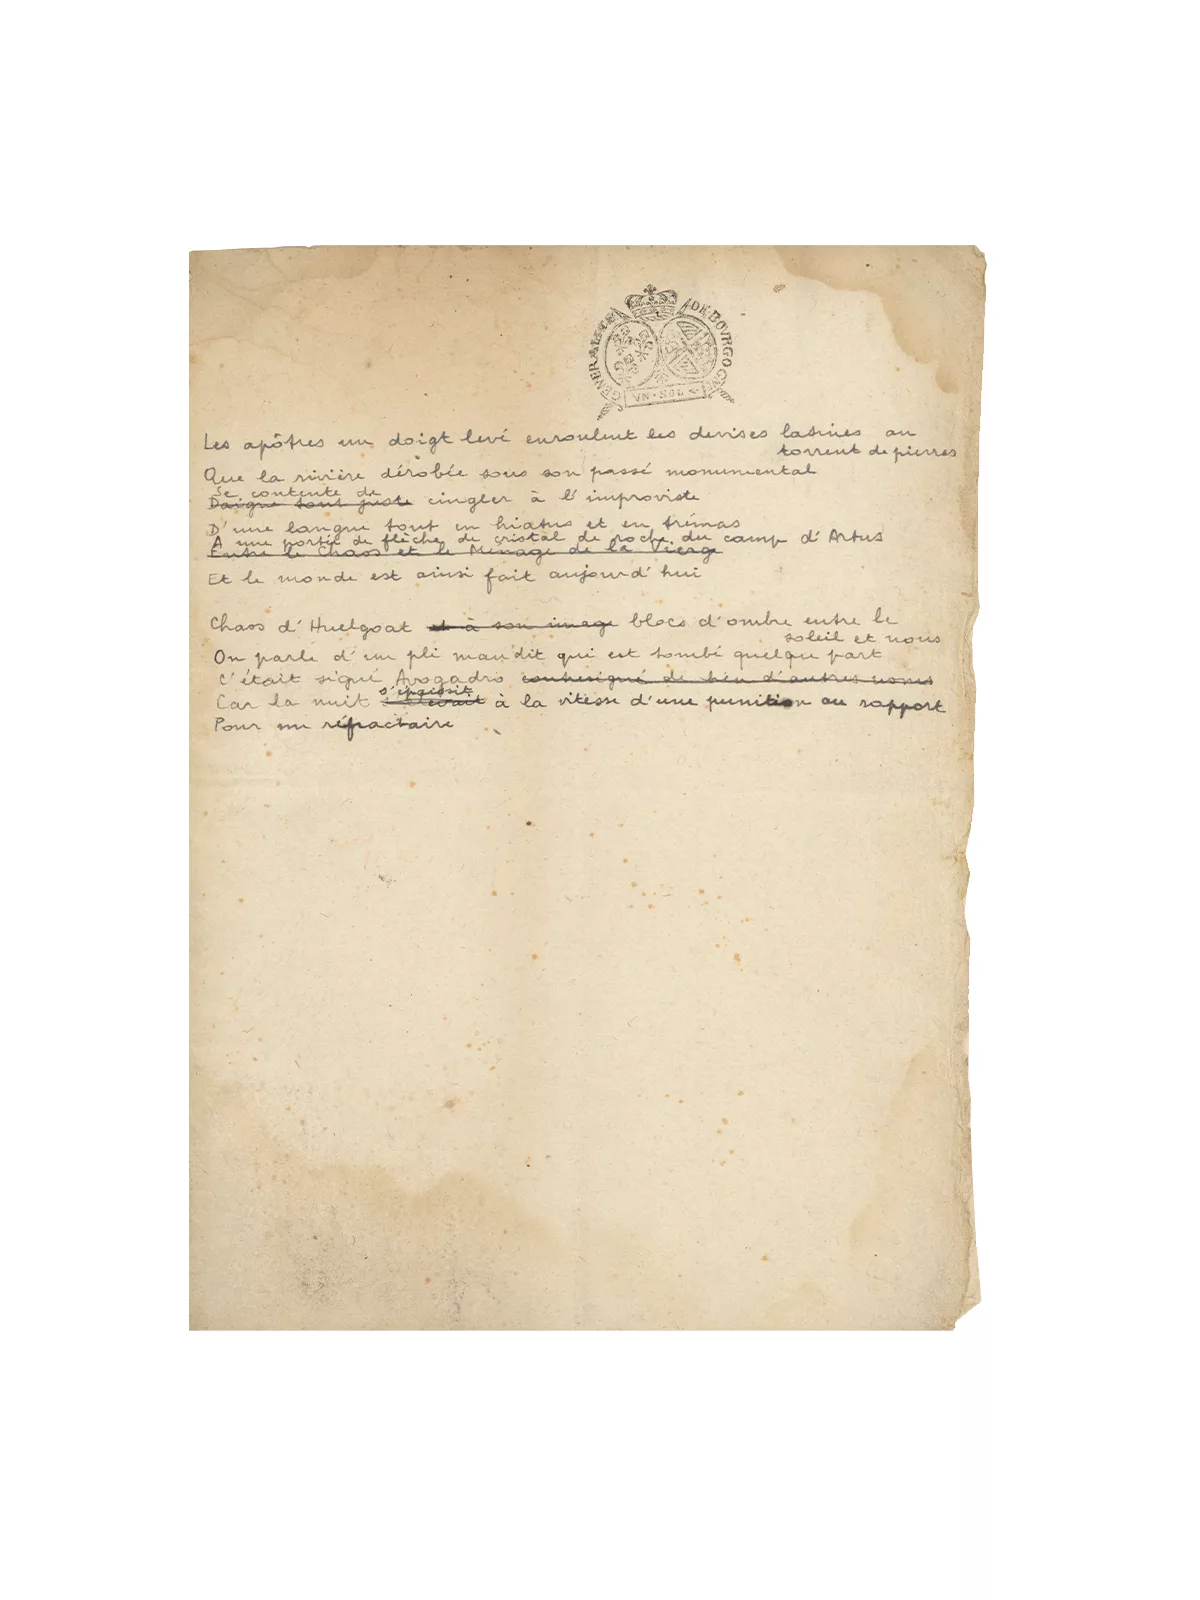 GENERALITE DE BOURGOGNE
VN·SOL
Les apôtres un doigt levé enroulent les devises latines au
torrent de pierres
Que la rivière dérobée sous son passé monumental
Se contente de
Daigne tout juste cingler à l'improviste
D'une langue tout en hiatus et en trémas
A une portée de flèche de cristal de roche du camp d'Artus
Entre le Chaos et le Ménage de la Vierge
Et le monde est ainsi fait aujourd'hui
Chaos d'Huelgoat et à son image blocs d'ombre entre le
soleil et nous
On parle d'un pli maudit qui est tombé quelque part
C'était signé Avogadro contresigné de bien d'autres noms
s'épaissit
Car la nuit s'élevait à la vitesse d'une punition au rapport
Pour un réfractaire